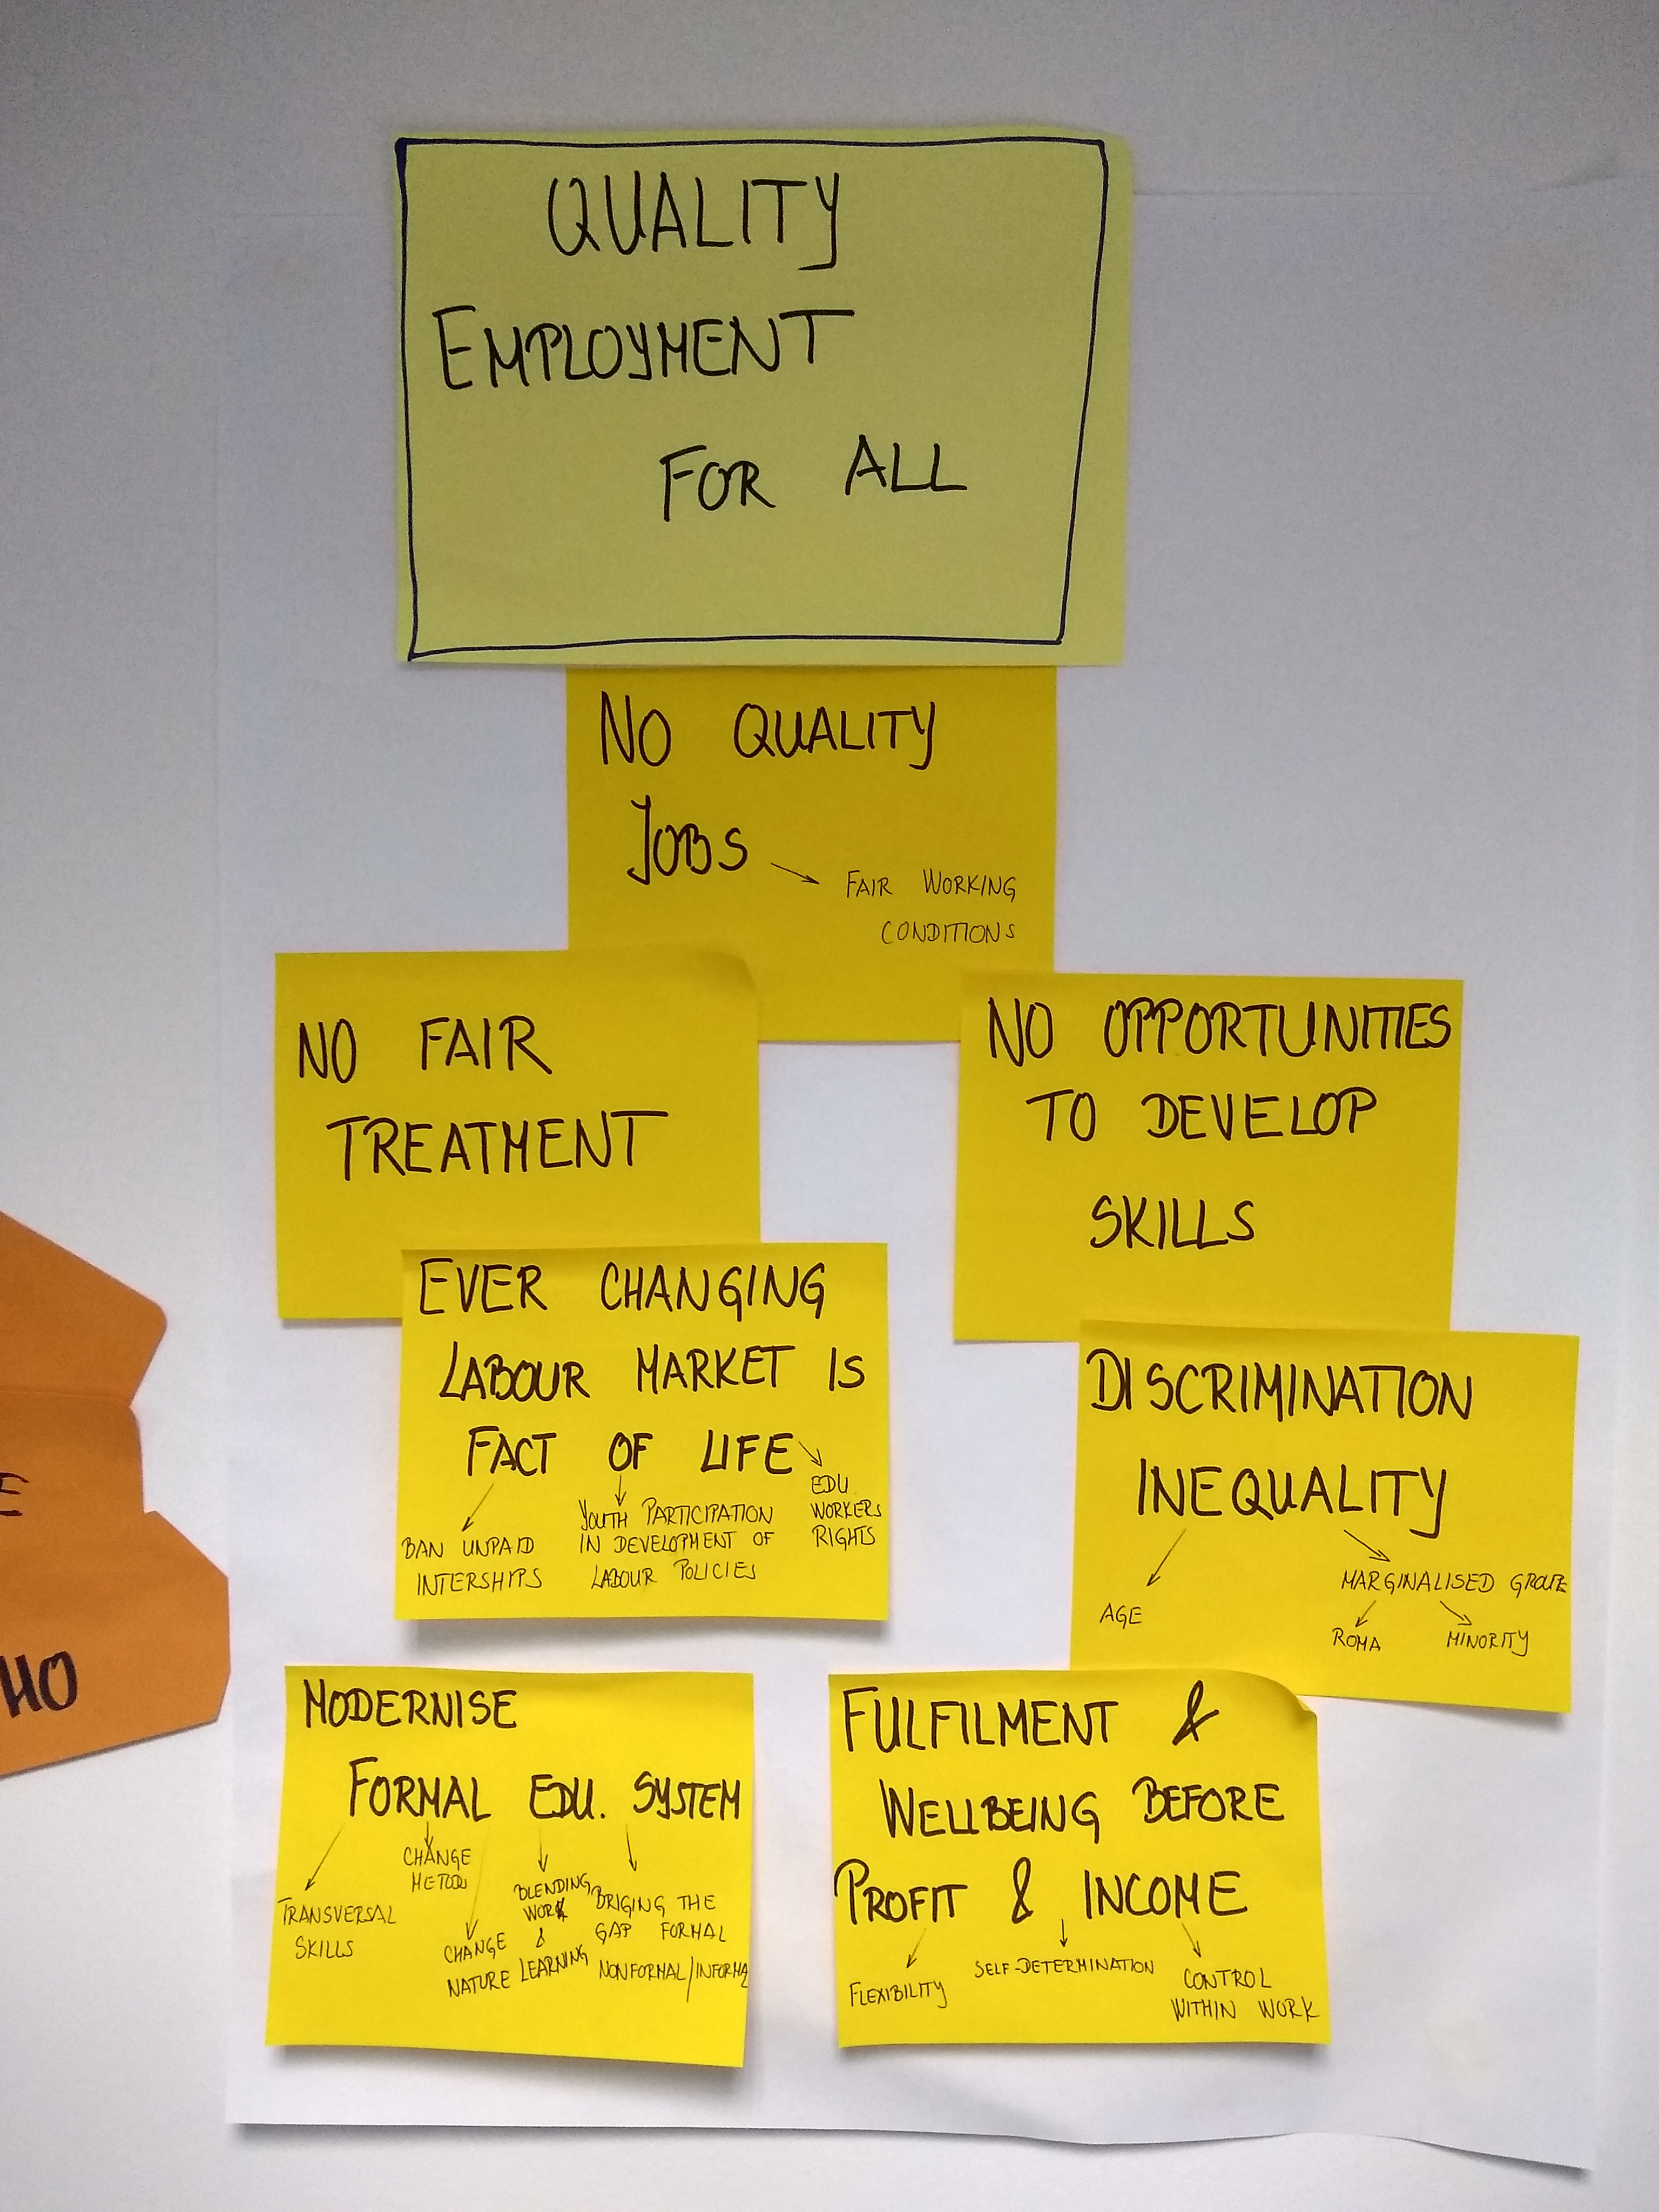 QUALITY
EMPLOYMENT
FOR ALL
NO QUALITY
JOBS
FAIR WORKING
CONDITIONS
NO FAIR
TREATMENT
NO OPPORTUNITIES
TO DEVELOP
SKILLS
EVER CHANGING
LABOUR MARKET IS
FACT OF LIFE
BAN UNPAID
INTERSHIPS
YOUTH PARTICIPATION
IN DEVELOPMENT OF
LABOUR POLICIES
EDU.
WORKERS
RIGHTS
DISCRIMINATION
INEQUALITY
AGE
MARGINALISED
ROMA
MINORITY
MODERNISE
FORMAL EDU. SYSTEM
TRANSVERSAL
SKILLS
CHANGE
CHANGE
NATURE
BLENDING
WORK
&
LEARNING
BRIGING THE
GAP FORMAL
NONFORMAL/INFORMA
FULFILMENT &
WELLBEING BEFORE
PROFIT & INCOME
FLEXIBILITY
SELF-DETERMINATION
CONTROL
WITHIN WORK
E
HO